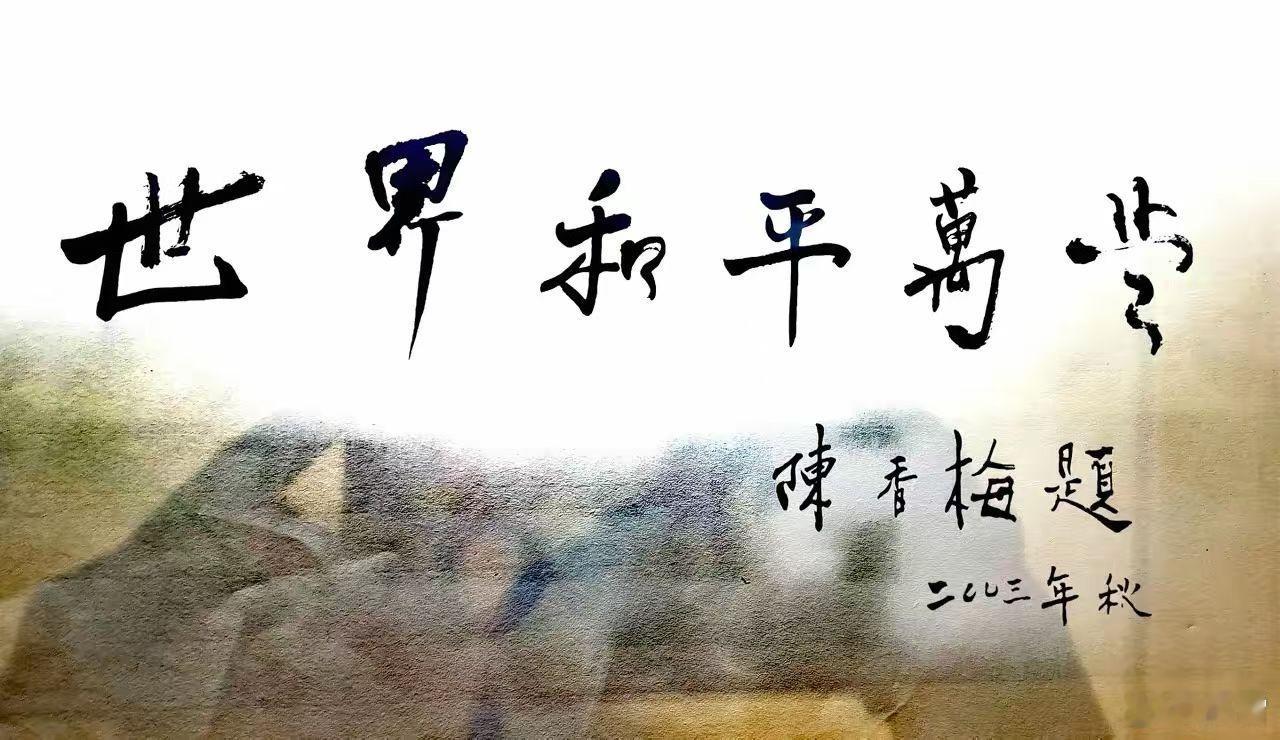 世界和平萬歲
陳香梅題
二〇〇三年秋